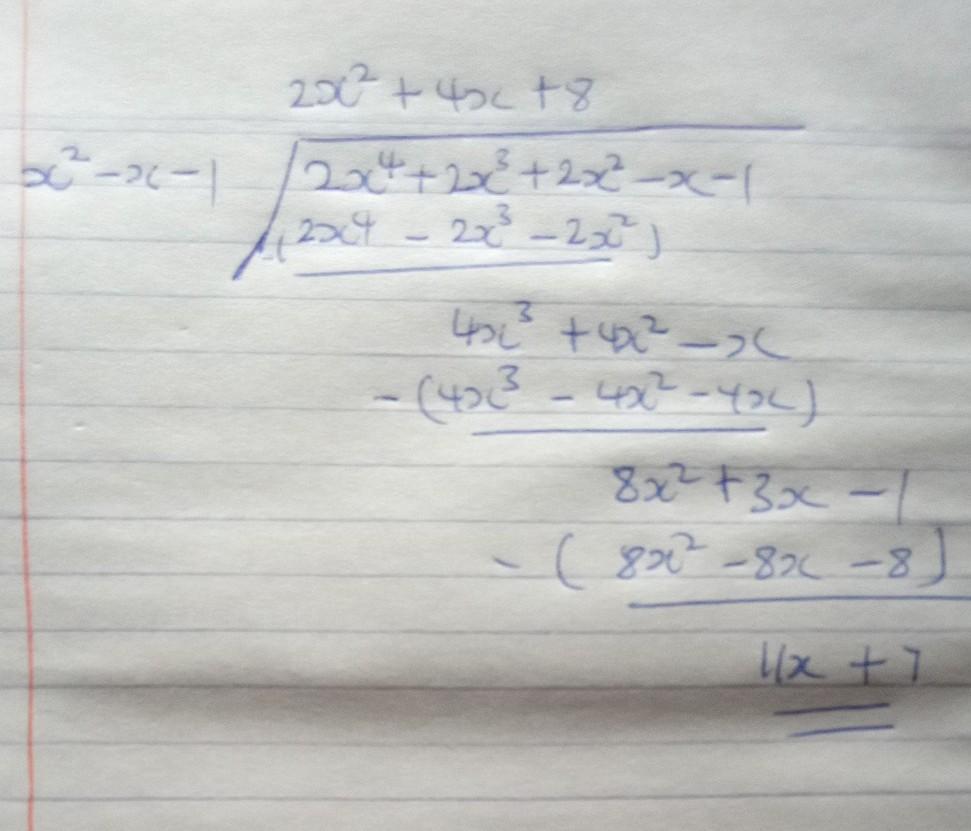 2x² + 4x + 8
x² - x - 1 2x⁴ + 2x³ + 2x² - x - 1
-(2x⁴ - 2x³ - 2x²)
4x³ + 4x² - x
-(4x³ - 4x² - 4x)
8x² + 3x - 1
-( 8x² - 8x - 8)
11x + 7